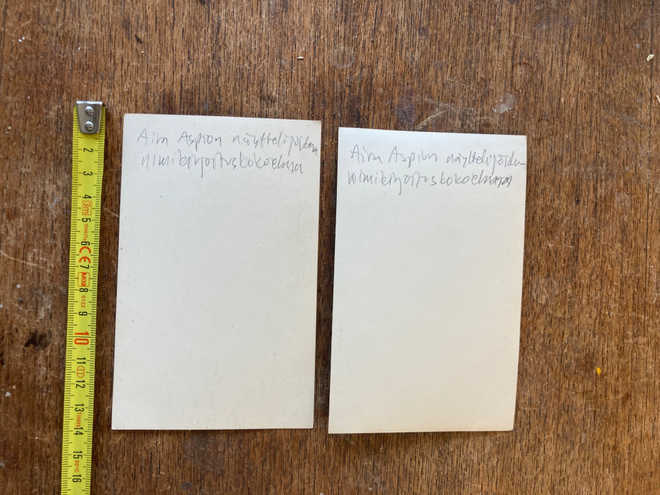 Aira Aspion näyttelijöiden
nimikirjoituskokoelma
Aira Aspion näyttelijöiden
nimikirjoituskokoelma
2
3m
4
5
6
CE
7
8
9
10
11
12
13
14
15
16